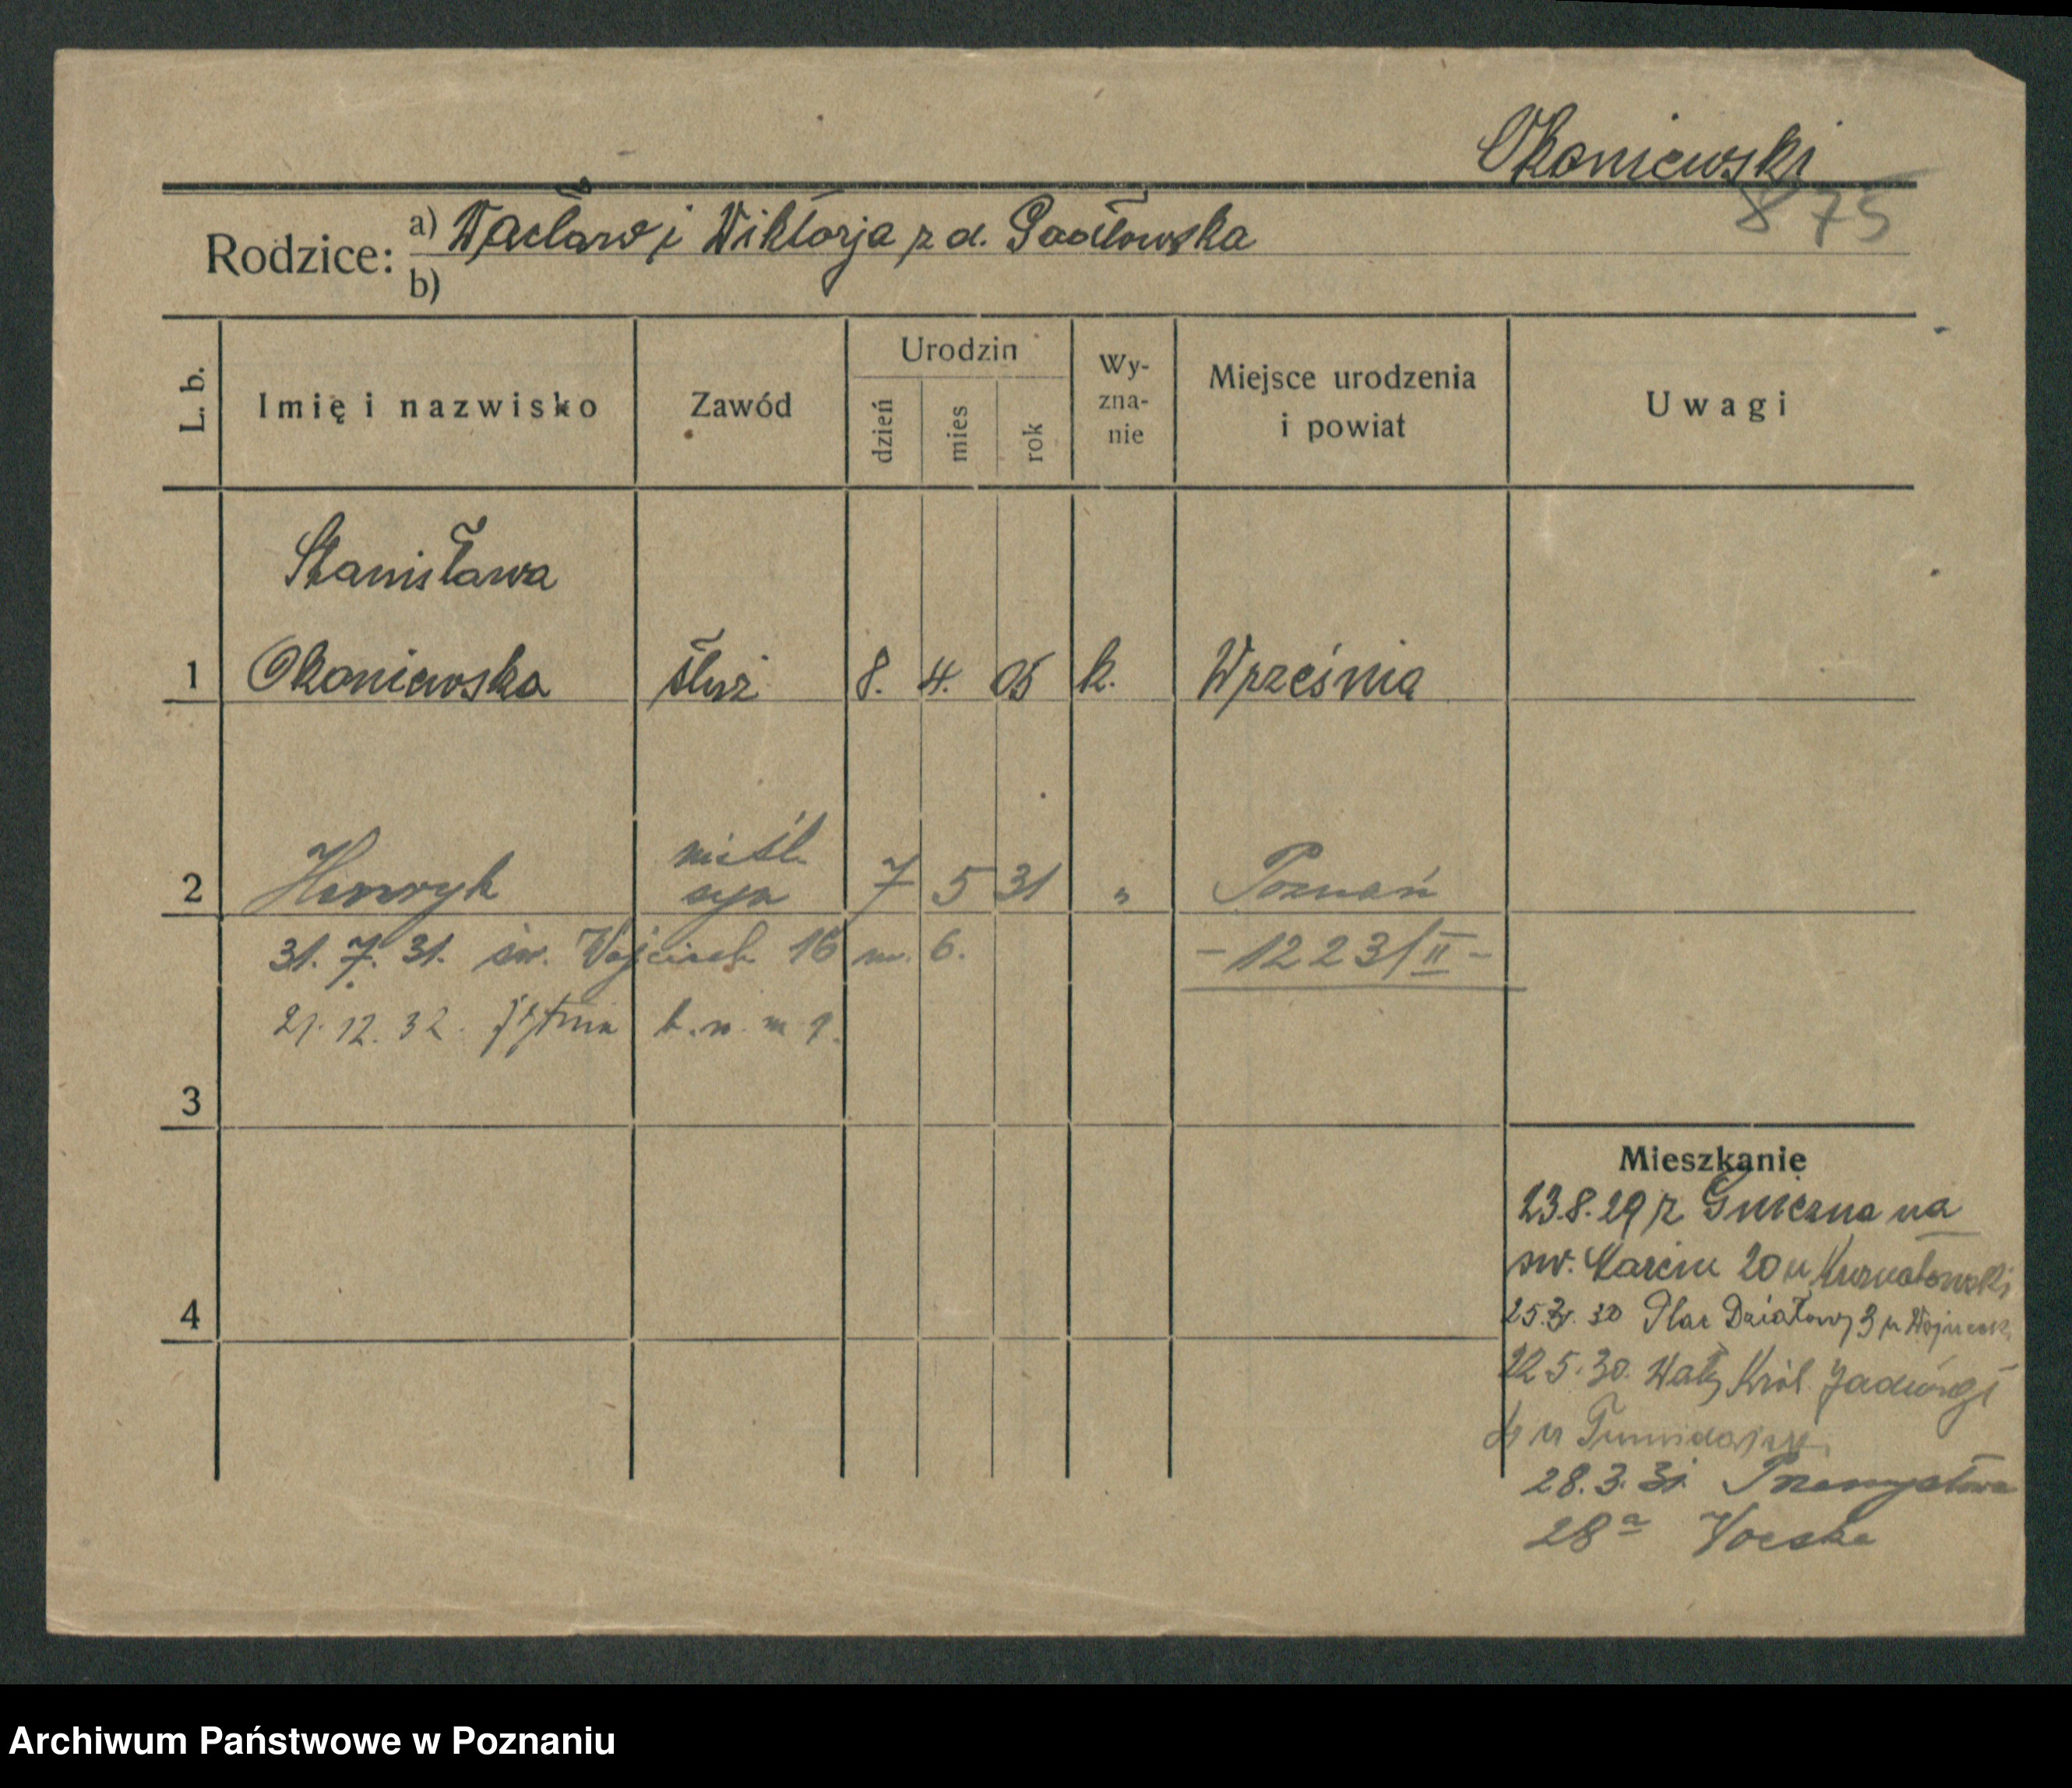 Okoniewski
875
Rodzice: a) Wacław i Wiktorja z d.
b)
L. b. Imię i nazwisko Zawód Urodzin dzień mies rok Wy-zna-nie Miejsce urodzenia i powiat Uwagi
Stanisława
1 Okoniewska służ 8. 4. 05 k. Września
nieśl.
2 Henryk syn 7 5 31 " Poznań
31. 7. 31. św. Wojciech 16 m. 6. - 12231/II -
21. 12. 32. Żytnia b. n. m
3
Mieszkanie
23.8.29 z Gniezna na
św. Marcin 20 u Kurnatowski
4
30 Plac Działowy 3 u
22 5. 30. Wały Król. Jadwigi
u
28. 3. 31. Przemysłowa
28a
Archiwum Państwowe w Poznaniu